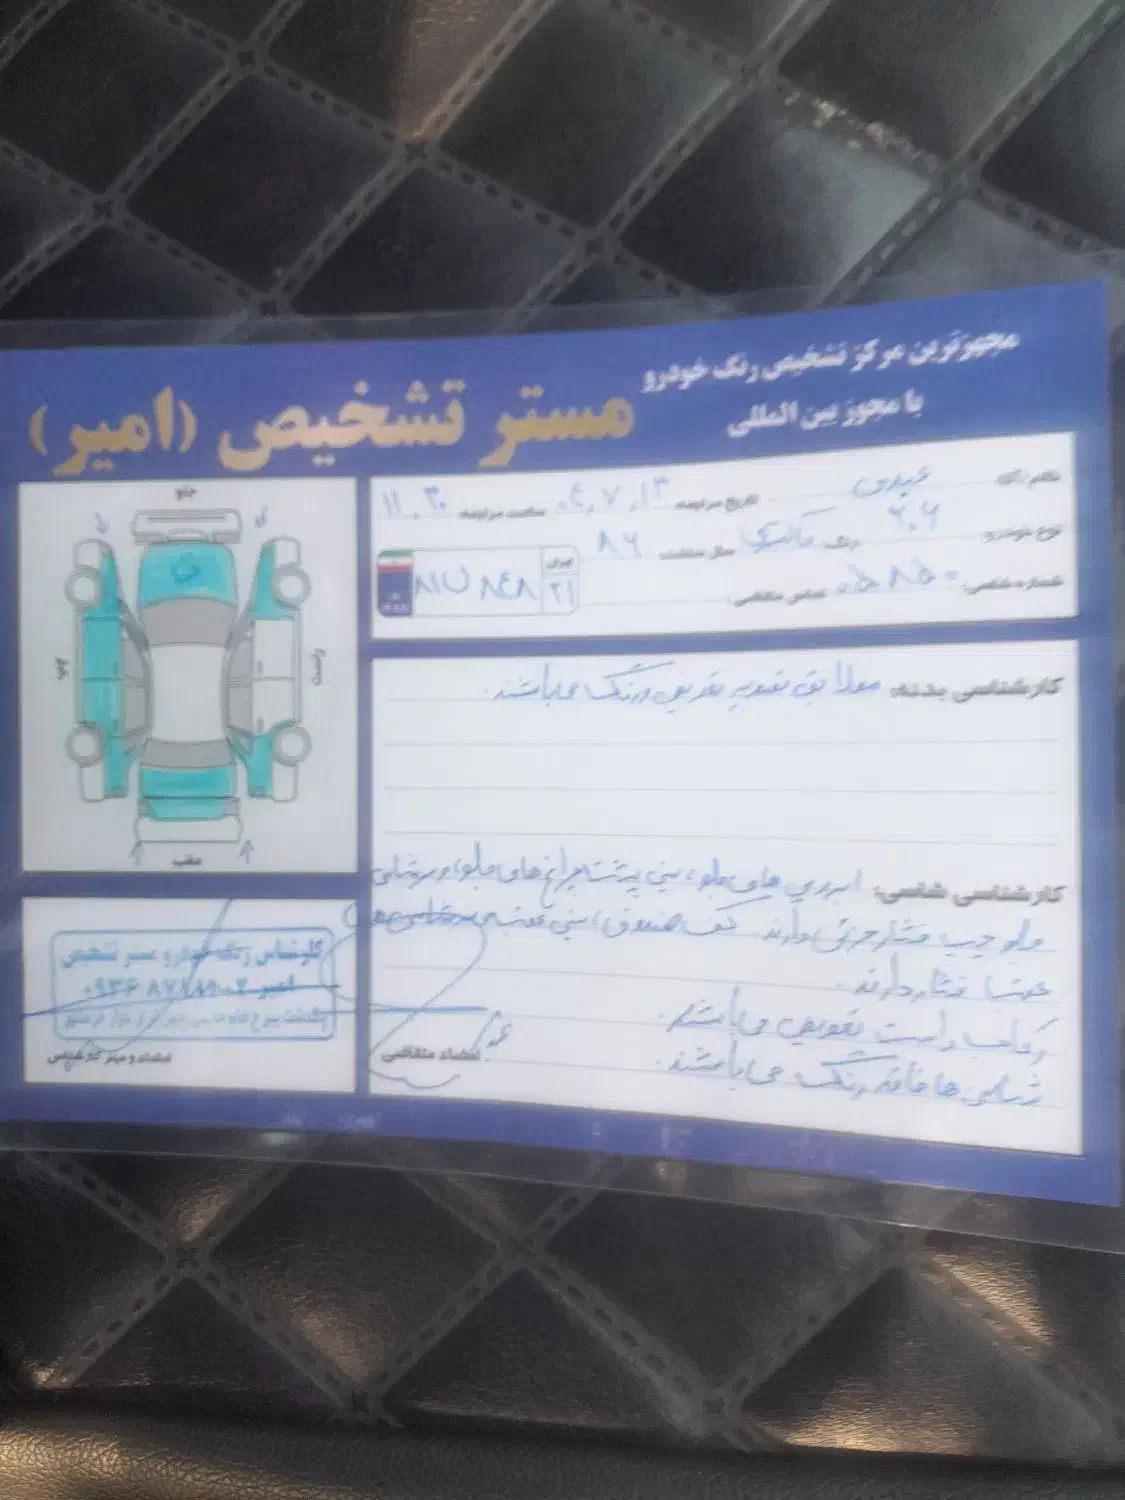 مجهزترین مرکز تشخیص رنگ خودرو
با مجوز بین المللی
مستر تشخیص (امیر)
نام آقای: عبیدی تاریخ مراجعه: ۰۴.۷.۱۳ ساعت مراجعه: ۱۱.۳۰
نوع خودرو: ۲۰۶ رنگ: خاکستری سال ساخت: ۸۶
شماره شاسی: ۰۵۸۵۰ تماس متقاضی:
ایران ۲۱ ۸۴۸ ل ۸۱
جلو
چپ
راست
عقب
ت
کارشناسی بدنه: مطابق تصویر تعویض و رنگ می‌باشند.
کارشناسی شاسی: ابرویی های جلو، سینی پشت چراغ های جلو، سرشاسی
جلو چپ فشار جزئی دارند. کف صندوق، سینی عقب
عقب فشار دارند.
راست تعویض می‌باشد.
شاسی ها فاقد رنگ می‌باشند.
امضاء متقاضی
کارشناس رنگ خودرو مستر تشخیص
امیر
امضاء و مهر کارشناس